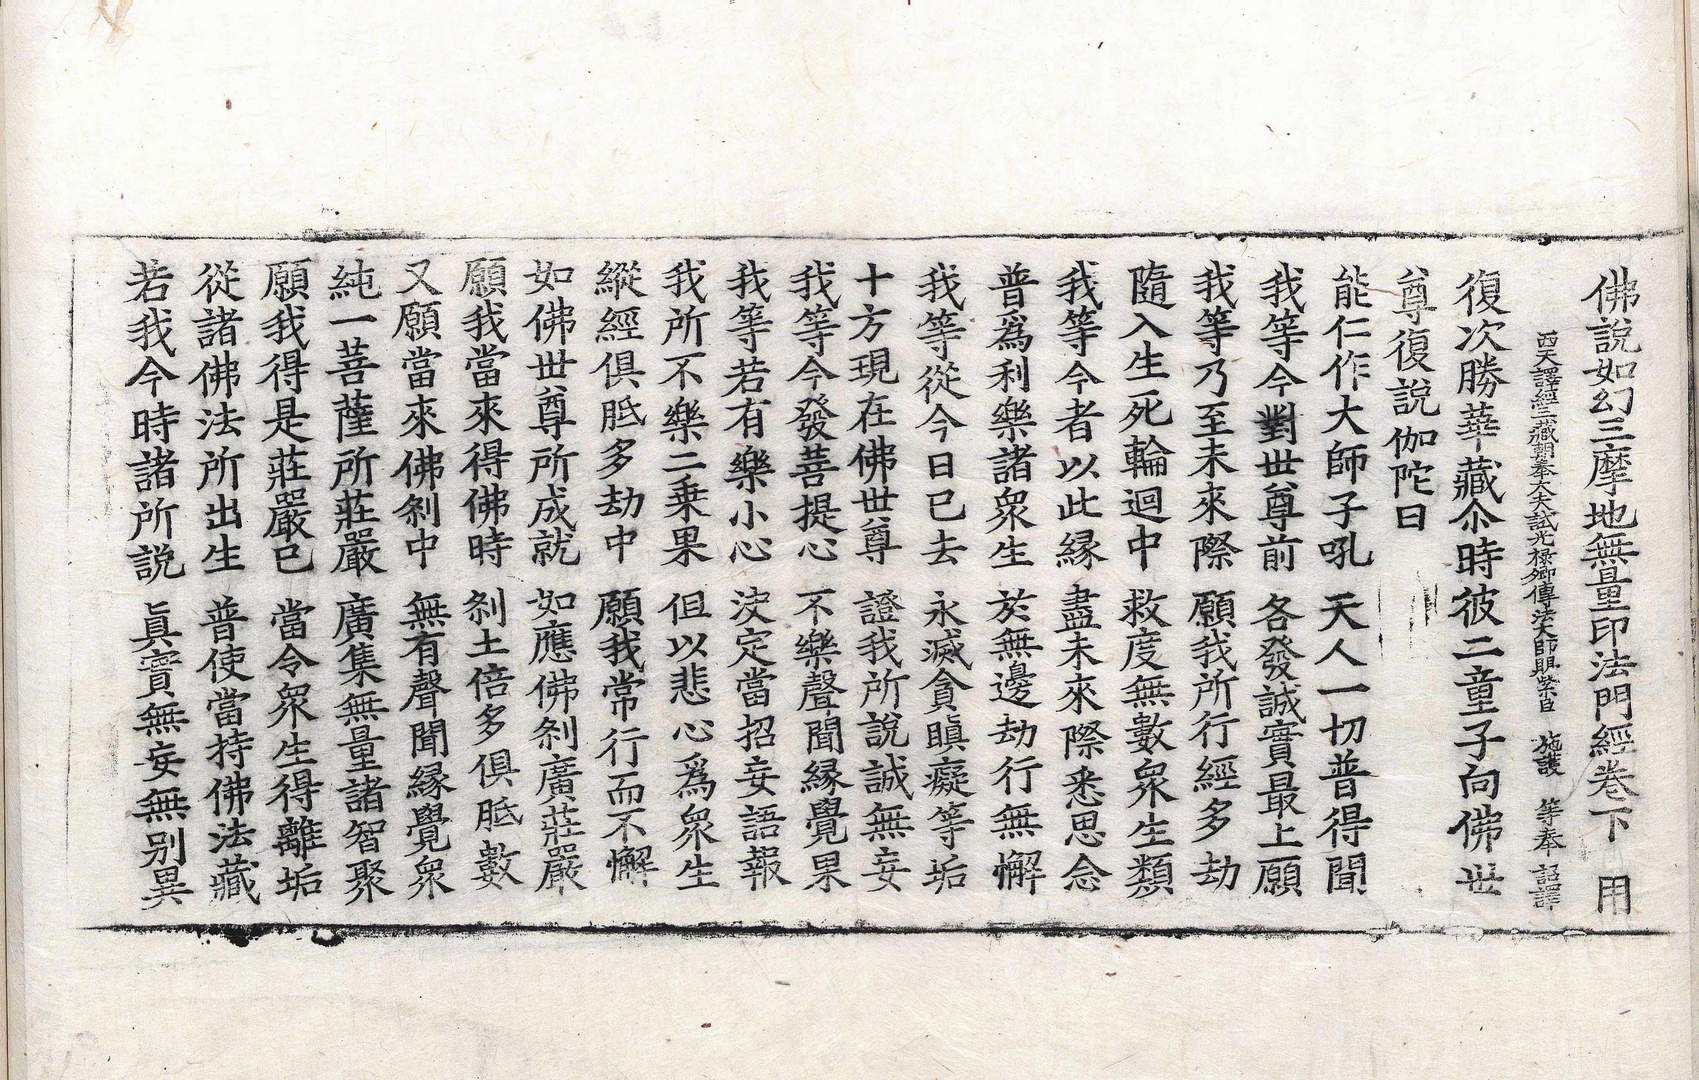 佛說如幻三摩地無量印法門經卷下　用
西天譯經三藏朝奉大夫試光祿卿傳法大師賜紫臣　施護　等奉　詔譯
復次勝華藏尒時彼二童子向佛世
尊復說伽陀曰
能仁作大師子吼　天人一切普得聞
我等今對世尊前　各發誠實最上願
我等乃至未來際　願我所行經多劫
隨入生死輪迴中　救度無數衆生類
我等今者以此緣　盡未來際悉思念
普爲利樂諸衆生　於無邊劫行無懈
我等從今日已去　永滅貪瞋癡等垢
十方現在佛世尊　證我所說誠無妄
我等今發菩提心　不樂聲聞緣覺果
我等若有樂小心　決定當招妄語報
我所不樂二乘果　但以悲心爲衆生
縱經俱胝多劫中　願我常行而不懈
如佛世尊所成就　如應佛刹廣莊嚴
願我當來得佛時　刹土倍多俱胝數
又願當來佛刹中　無有聲聞緣覺衆
純一菩薩所莊嚴　廣集無量諸智聚
願我得是莊嚴已　當令衆生得離垢
從諸佛法所出生　普使當持佛法藏
若我今時諸所說　眞實無妄無別異